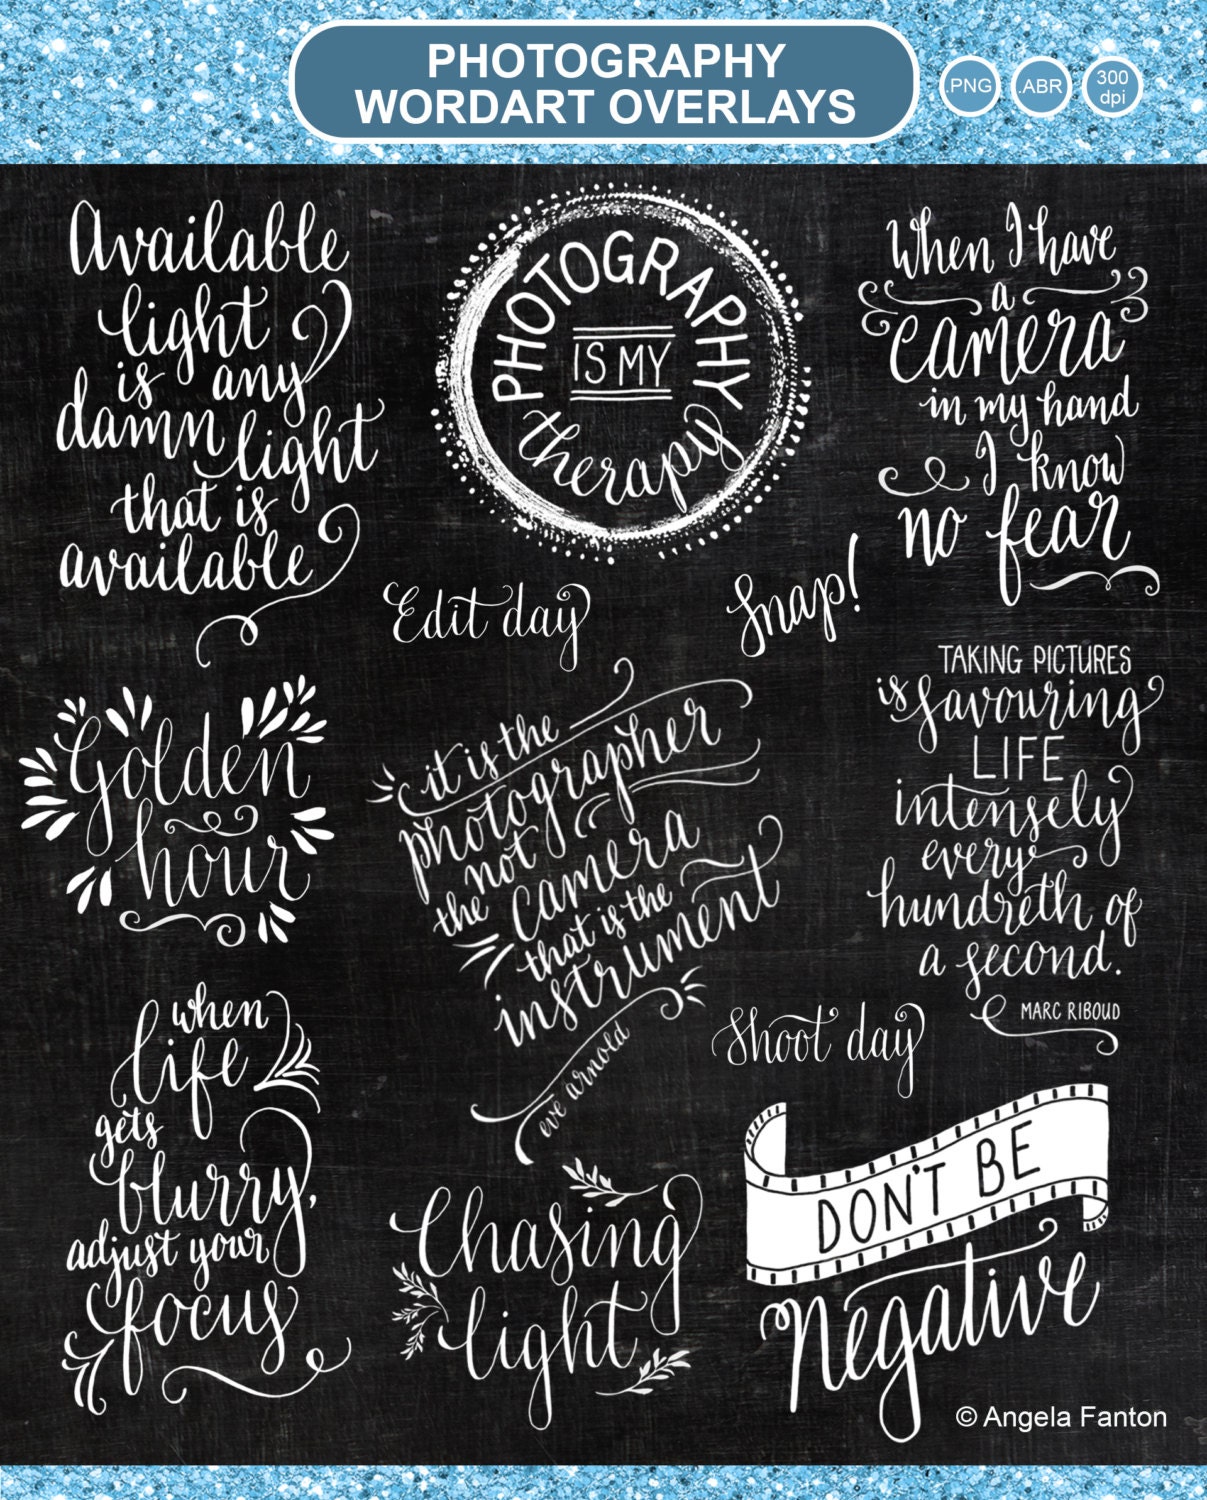 PHOTOGRAPHY
WORDART OVERLAYS
.PNG
.ABR
300
dpi
Available
light
is any
damn light
that is
available
PHOTOGRAPHY
IS MY
therapy
When I have
a
camera
in my hand
I know
no fear
Edit day
Snap!
Golden
hour
it is the
photographer
photographer
the not
camera
that is the
instrument
eve arnold
TAKING PICTURES
is savouring
LIFE
intensely
every
hundreth of
a second.
MARC RIBOUD
when
life
gets
blurry,
adjust your
focus
Shoot day
Chasing
light
DON'T BE
Negative
© Angela Fanton